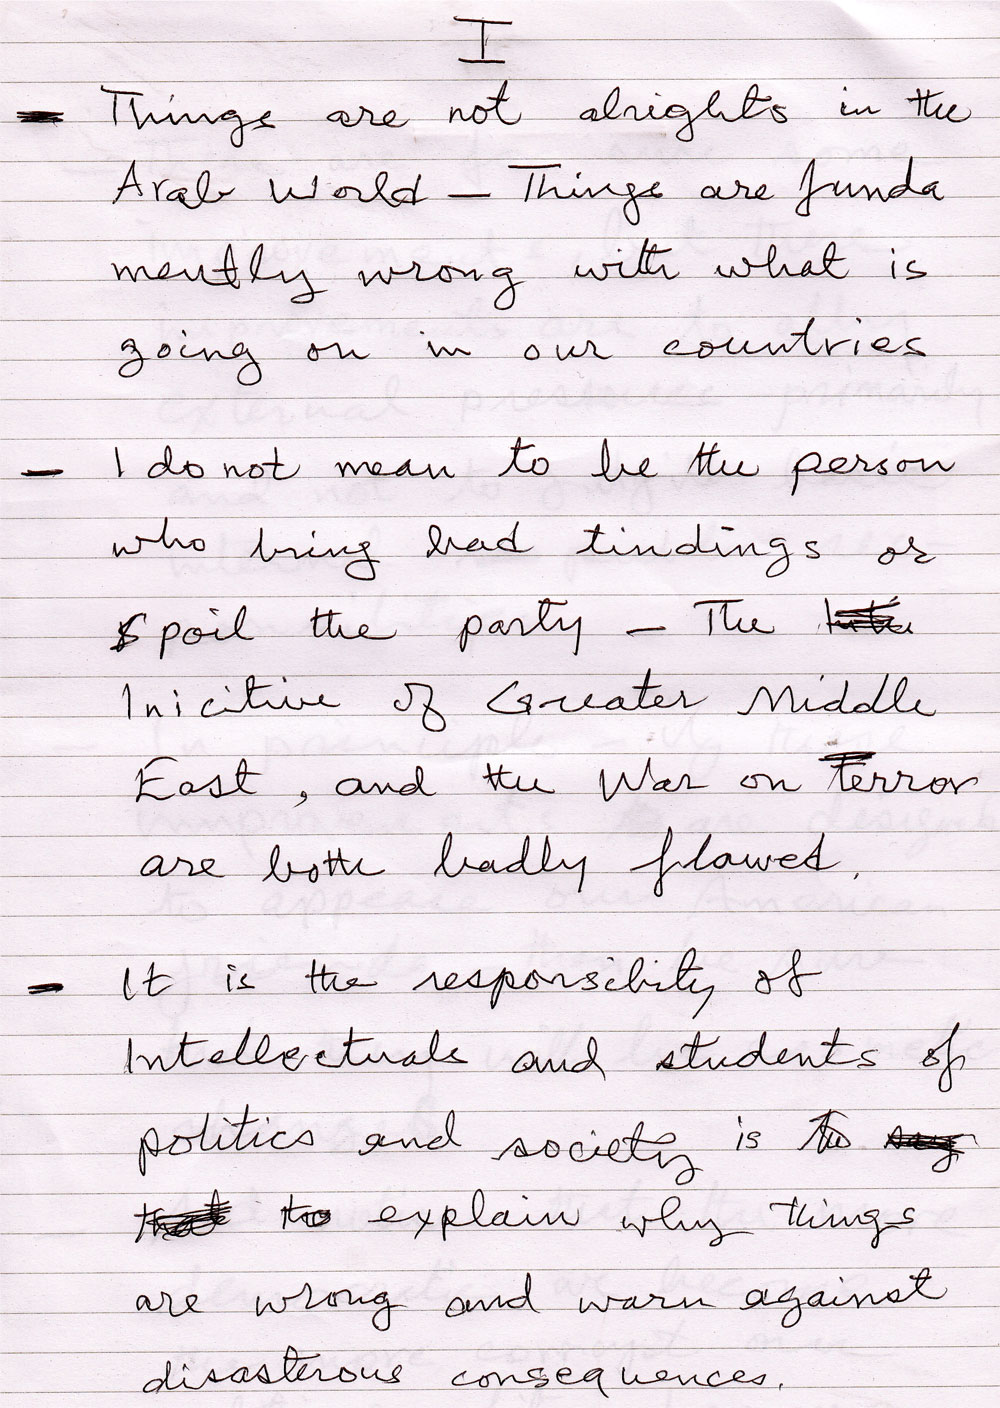 I
- Things are not alrights in the
Arab World - Things are funda
mently wrong with what is
going on in our countries
- I do not mean to be the person
who bring bad tindings or
spoil the party - The
Inicitive of Greater Middle
East, and the War on Terror
are both badly flawed.
- It is the responsibility of
Intellectuals and students of
politics and society is to say
that to explain why things
are wrong and warn against
disasterous consequences.